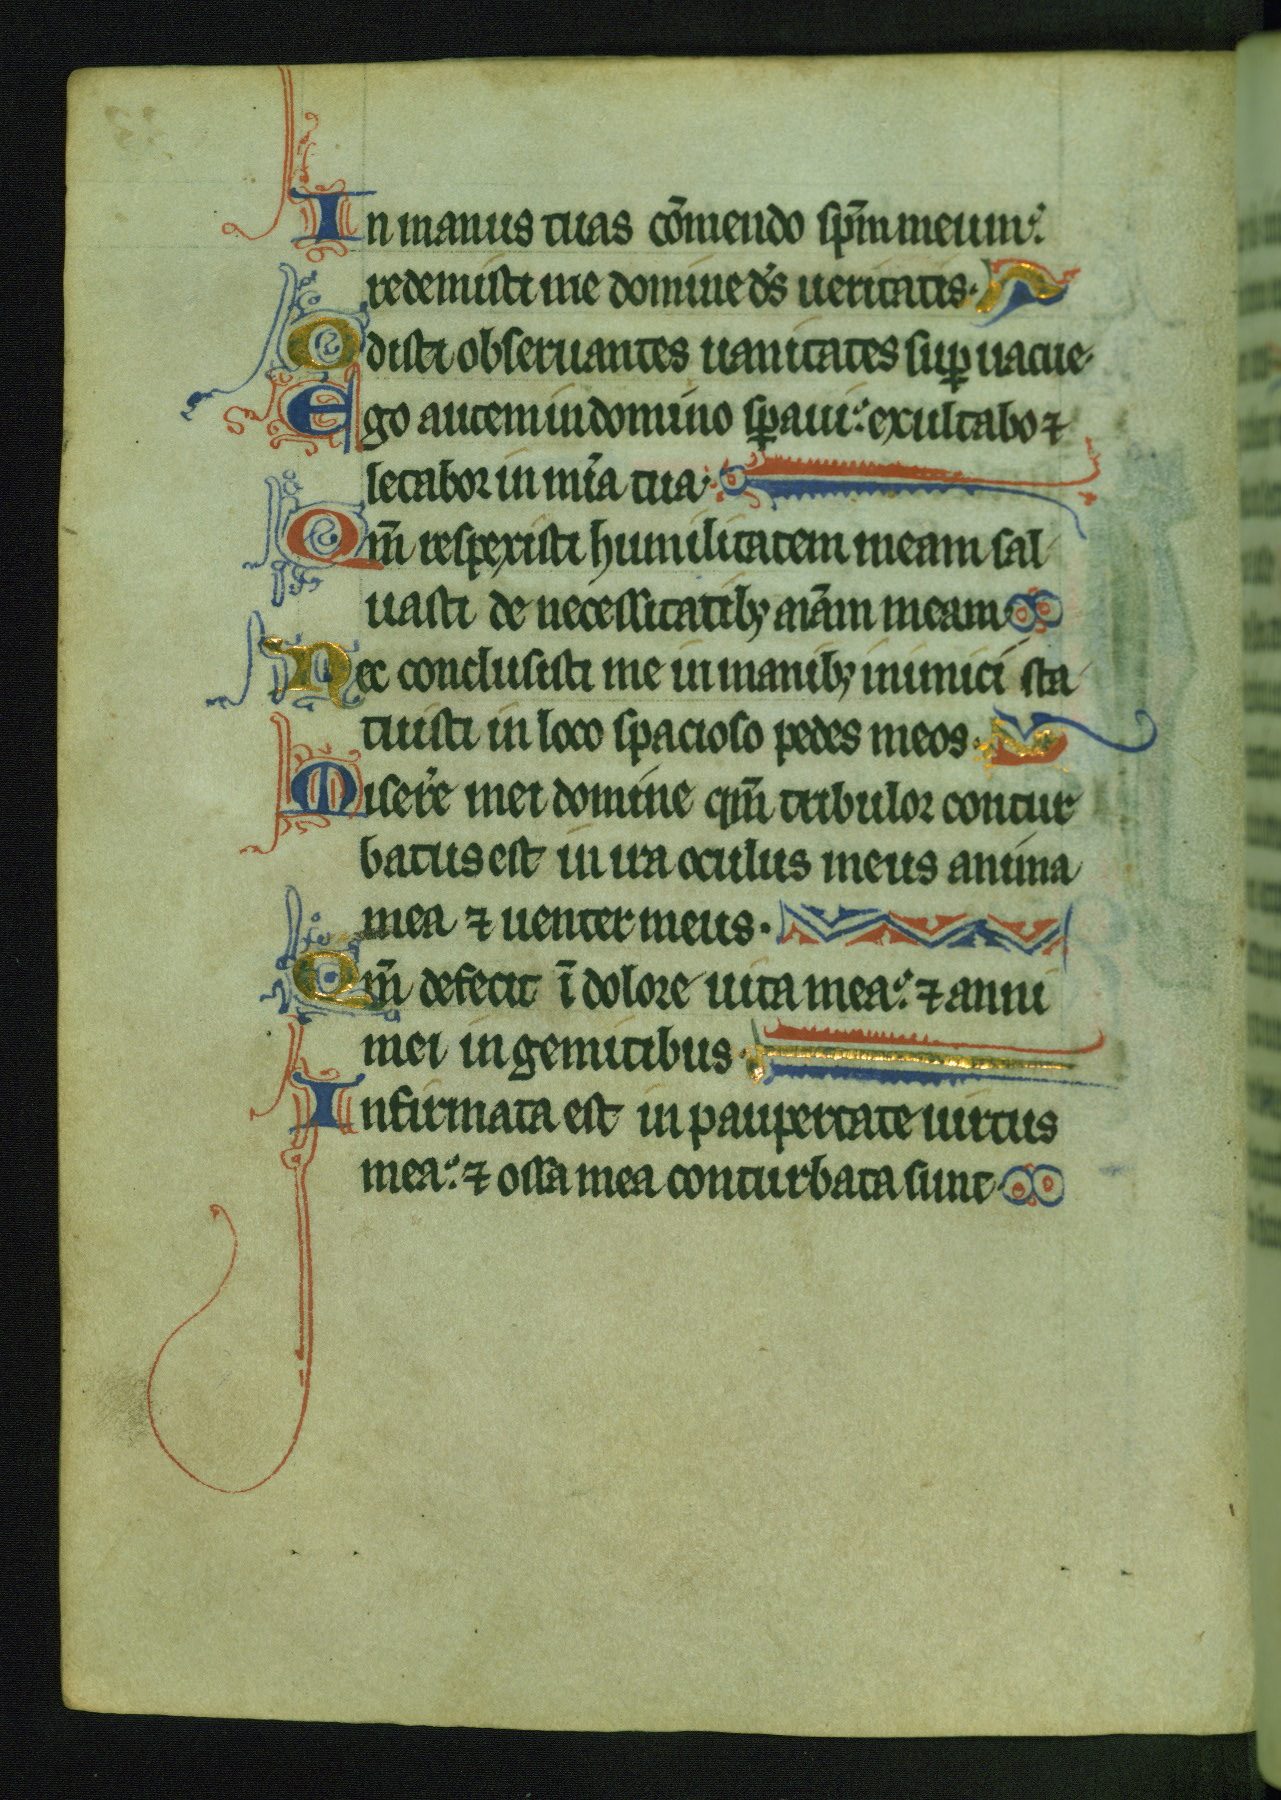 In manus tuas cōmendo sp̄m meum:
redemisti me domine ds̄ ueritatis.
Odisti obseruantes uanitates sup̱uacue.
Ego autem in domino sp̱aui: exultabo ⁊
letabor in mīa tua.
Qm̄ respexisti humilitatem meam sal
uasti de necessitatibꝫ aīam meam
Nec conclusisti me in manibꝫ inimici sta
tuisti in loco spacioso pedes meos.
Miser̄e mei domine qm̄ tribulor contur
batus est in ira oculus meus anima
mea ⁊ uenter meus.
Qm̄ defecit ī dolore uita mea: ⁊ anni
mei in gemitibus.
Infirmata est in paupertate uirtus
mea: ⁊ ossa mea conturbata sunt